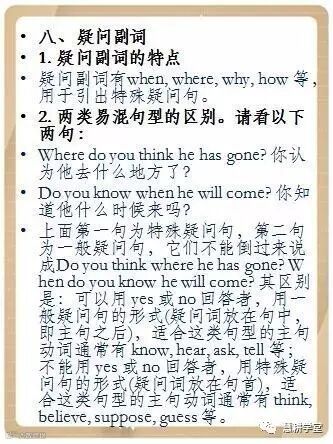 八、疑问副词
1. 疑问副词的特点
疑问副词有when, where, why, how 等，
用于引出特殊疑问句。
2. 两类易混句型的区别。请看以下
两句：
Where do you think he has gone? 你认
为他去什么地方了？
Do you know when he will come? 你知
道他什么时候来吗？
上面第一句为特殊疑问句，第二句
为一般疑问句，它们不能倒过来说
成Do you think where he has gone? W
hen do you know he will come? 其区别
是：可以用 yes 或 no 回答者，用一
般疑问句的形式(疑问词放在句中，
即主句之后)，适合这类句型的主句
动词通常有 know, hear, ask, tell 等；
不能用 yes 或 no 回答者，用特殊疑
问句的形式(疑问词放在句首)，适
合这类句型的主句动词通常有 think,
believe, suppose, guess 等。